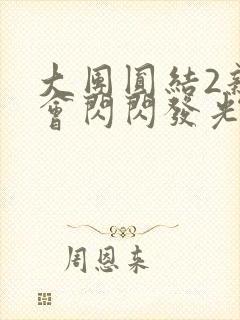 大圍圓結2新
會閃閃發光
周恩来